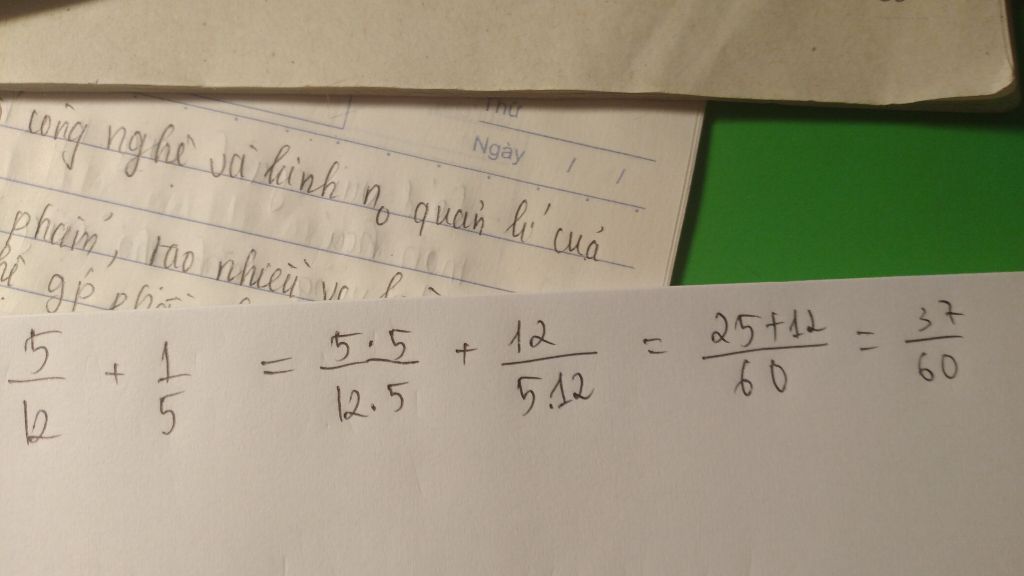 Thứ
Ngày / /
công nghề và kinh no quản lí cuả
phẩm, tạo nhiều
5/12 + 1/5 = 5.5/12.5 + 12/5.12 = 25+12/60 = 37/60